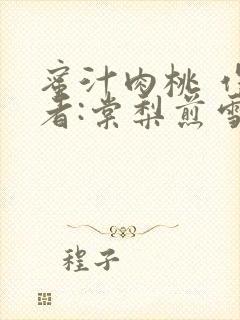 蜜汁肉桃
者:棠梨煎
程子